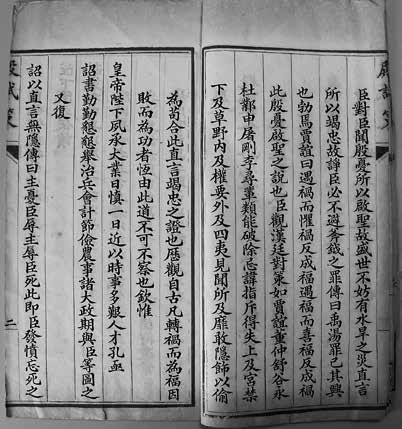 殿試策
臣對臣聞殷憂所以啟聖故盛世不妨有水旱之災直言
所以竭忠故諍臣必不避斧鉞之罪傳曰禹湯罪己其興
也勃焉賈誼曰遇禍而懼禍反成福遇福而喜福反成禍
此殷憂啟聖之說也臣觀漢廷對策如賈誼董仲舒谷永
杜鄴申屠剛李尋輩類能破除忌諱指斥得失上及宮禁
下及草野內及權要外及四夷見聞所及靡敢隱飾以偷
為苟合此直言竭忠之證也歷觀自古凡轉禍而為福因
敗而為功者恆由此道不可不察也欽惟
皇帝陛下夙承大業日慎一日近以時事多艱人才孔亟
詔書勤勤懇懇舉治兵會計節儉農事諸大政期與臣等圖之
又復
詔以直言無隱傳曰主憂臣辱主辱臣死此即臣發憤忘死之
殿試策
二